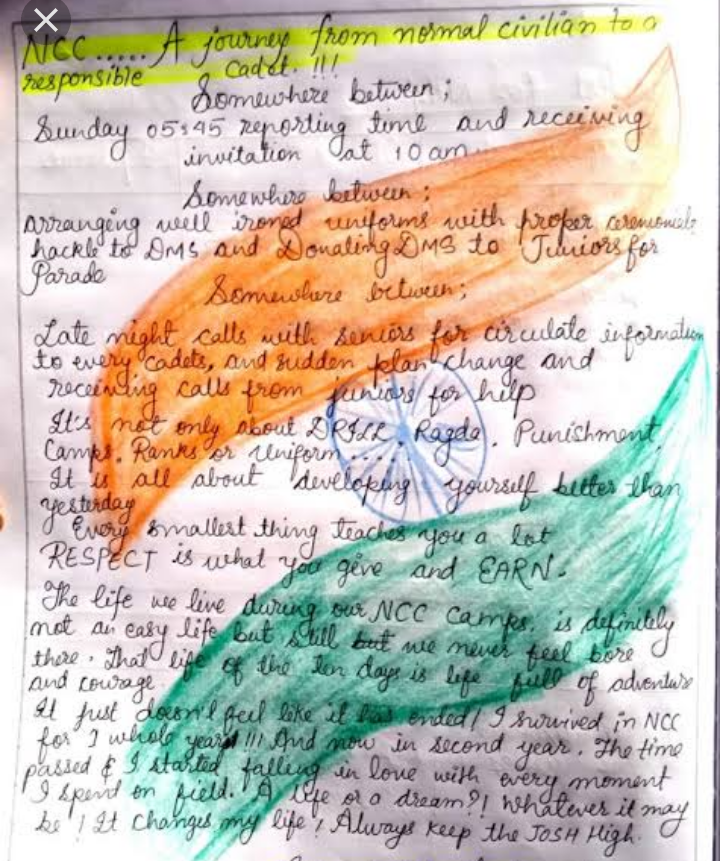 NCC..... A journey from normal civilian to a
responsible cadet. !!!
Somewhere between;
Sunday 05:45 reporting time and receiving
invitation at 10 am.
Somewhere between;
Arranging well ironed uniforms with proper ceremonials
hackle to DMS and Donating DMS to Juniors for
Parade
Somewhere between;
Late night calls with seniors for circulate information
to every cadets, and sudden plan change and
receiving calls from juniors for help
It's not only about DRILL. Ragda. Punishment,
Camps. Ranks or uniform.....
It is all about developing yourself better than
yesterday
Every smallest thing teaches you a lot
RESPECT is what you give and EARN.
The life we live during our NCC Camps. is definitely
not an easy life but still but we never feel bore
there. That life of the ten days is life full of adventure
and courage.
It just doesn't feel like it has ended! I survived in NCC
for 1 whole year!!! And now in second year. The time
passed & I started falling in love with every moment
I spend on field. A life or a dream?! Whatever it may
be! It changes my life! Always keep the JOSH High.